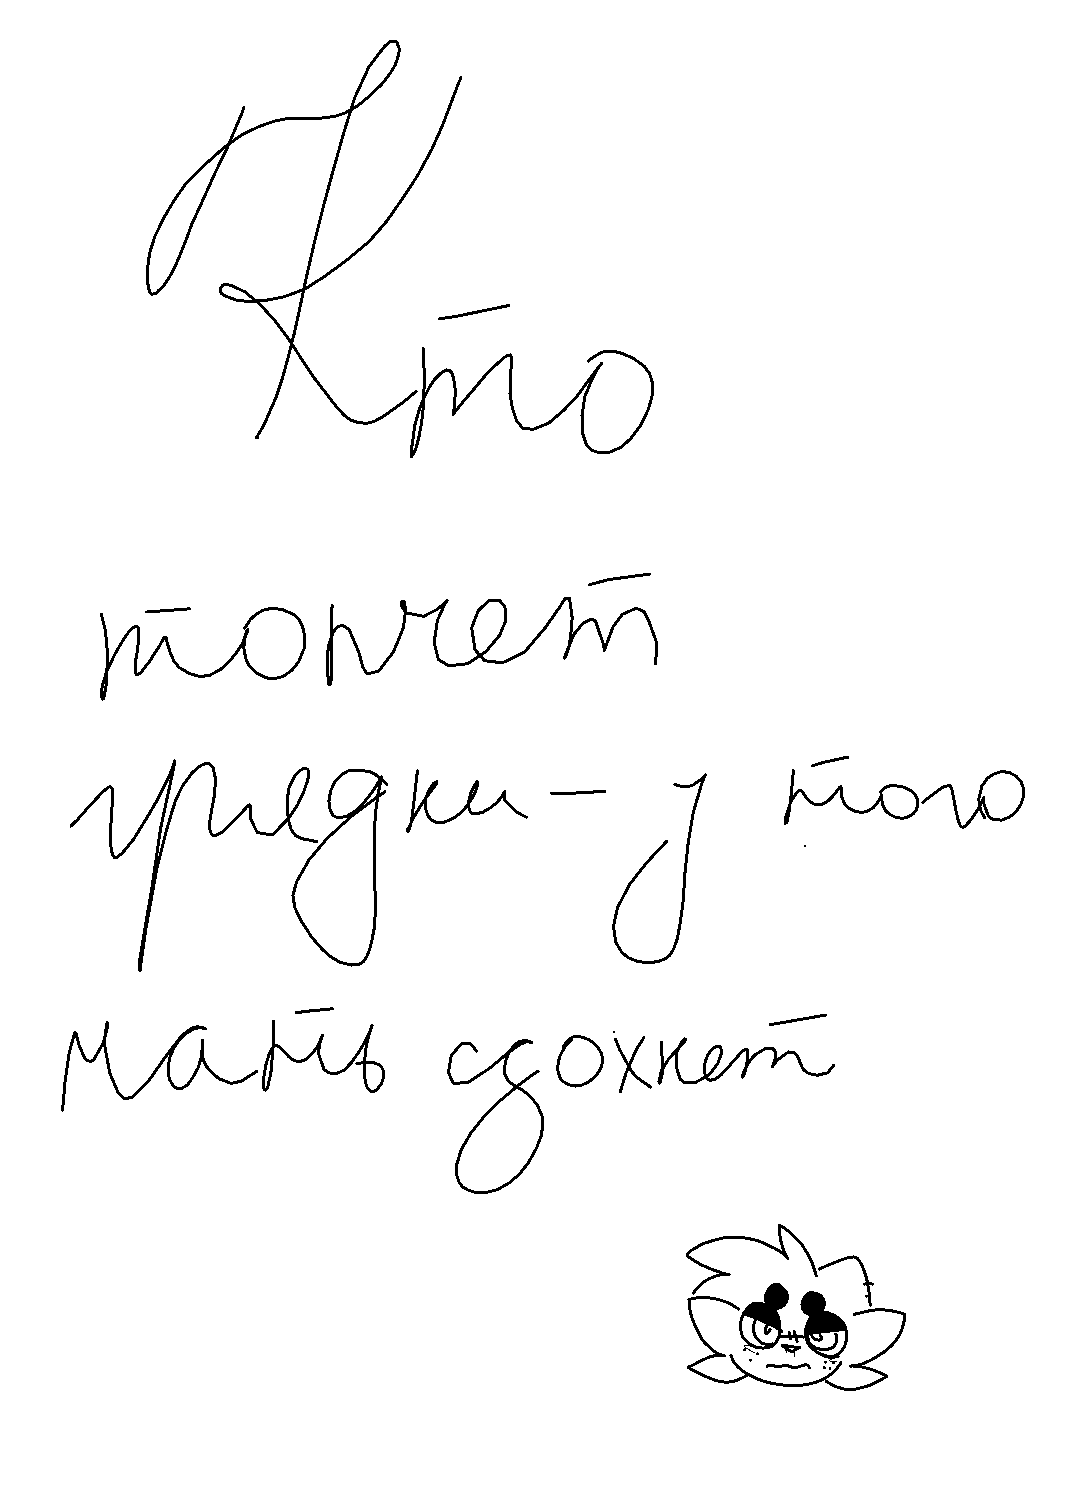 Кто
топчет
грядки - у того
мать сдохнет